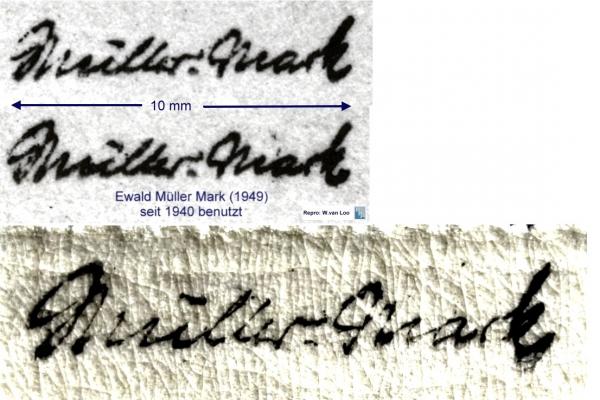 Müller-Mark
10 mm
Müller-Mark
Ewald Müller Mark (1949)
seit 1940 benutzt
Repro: W.van Loo
Müller-Mark